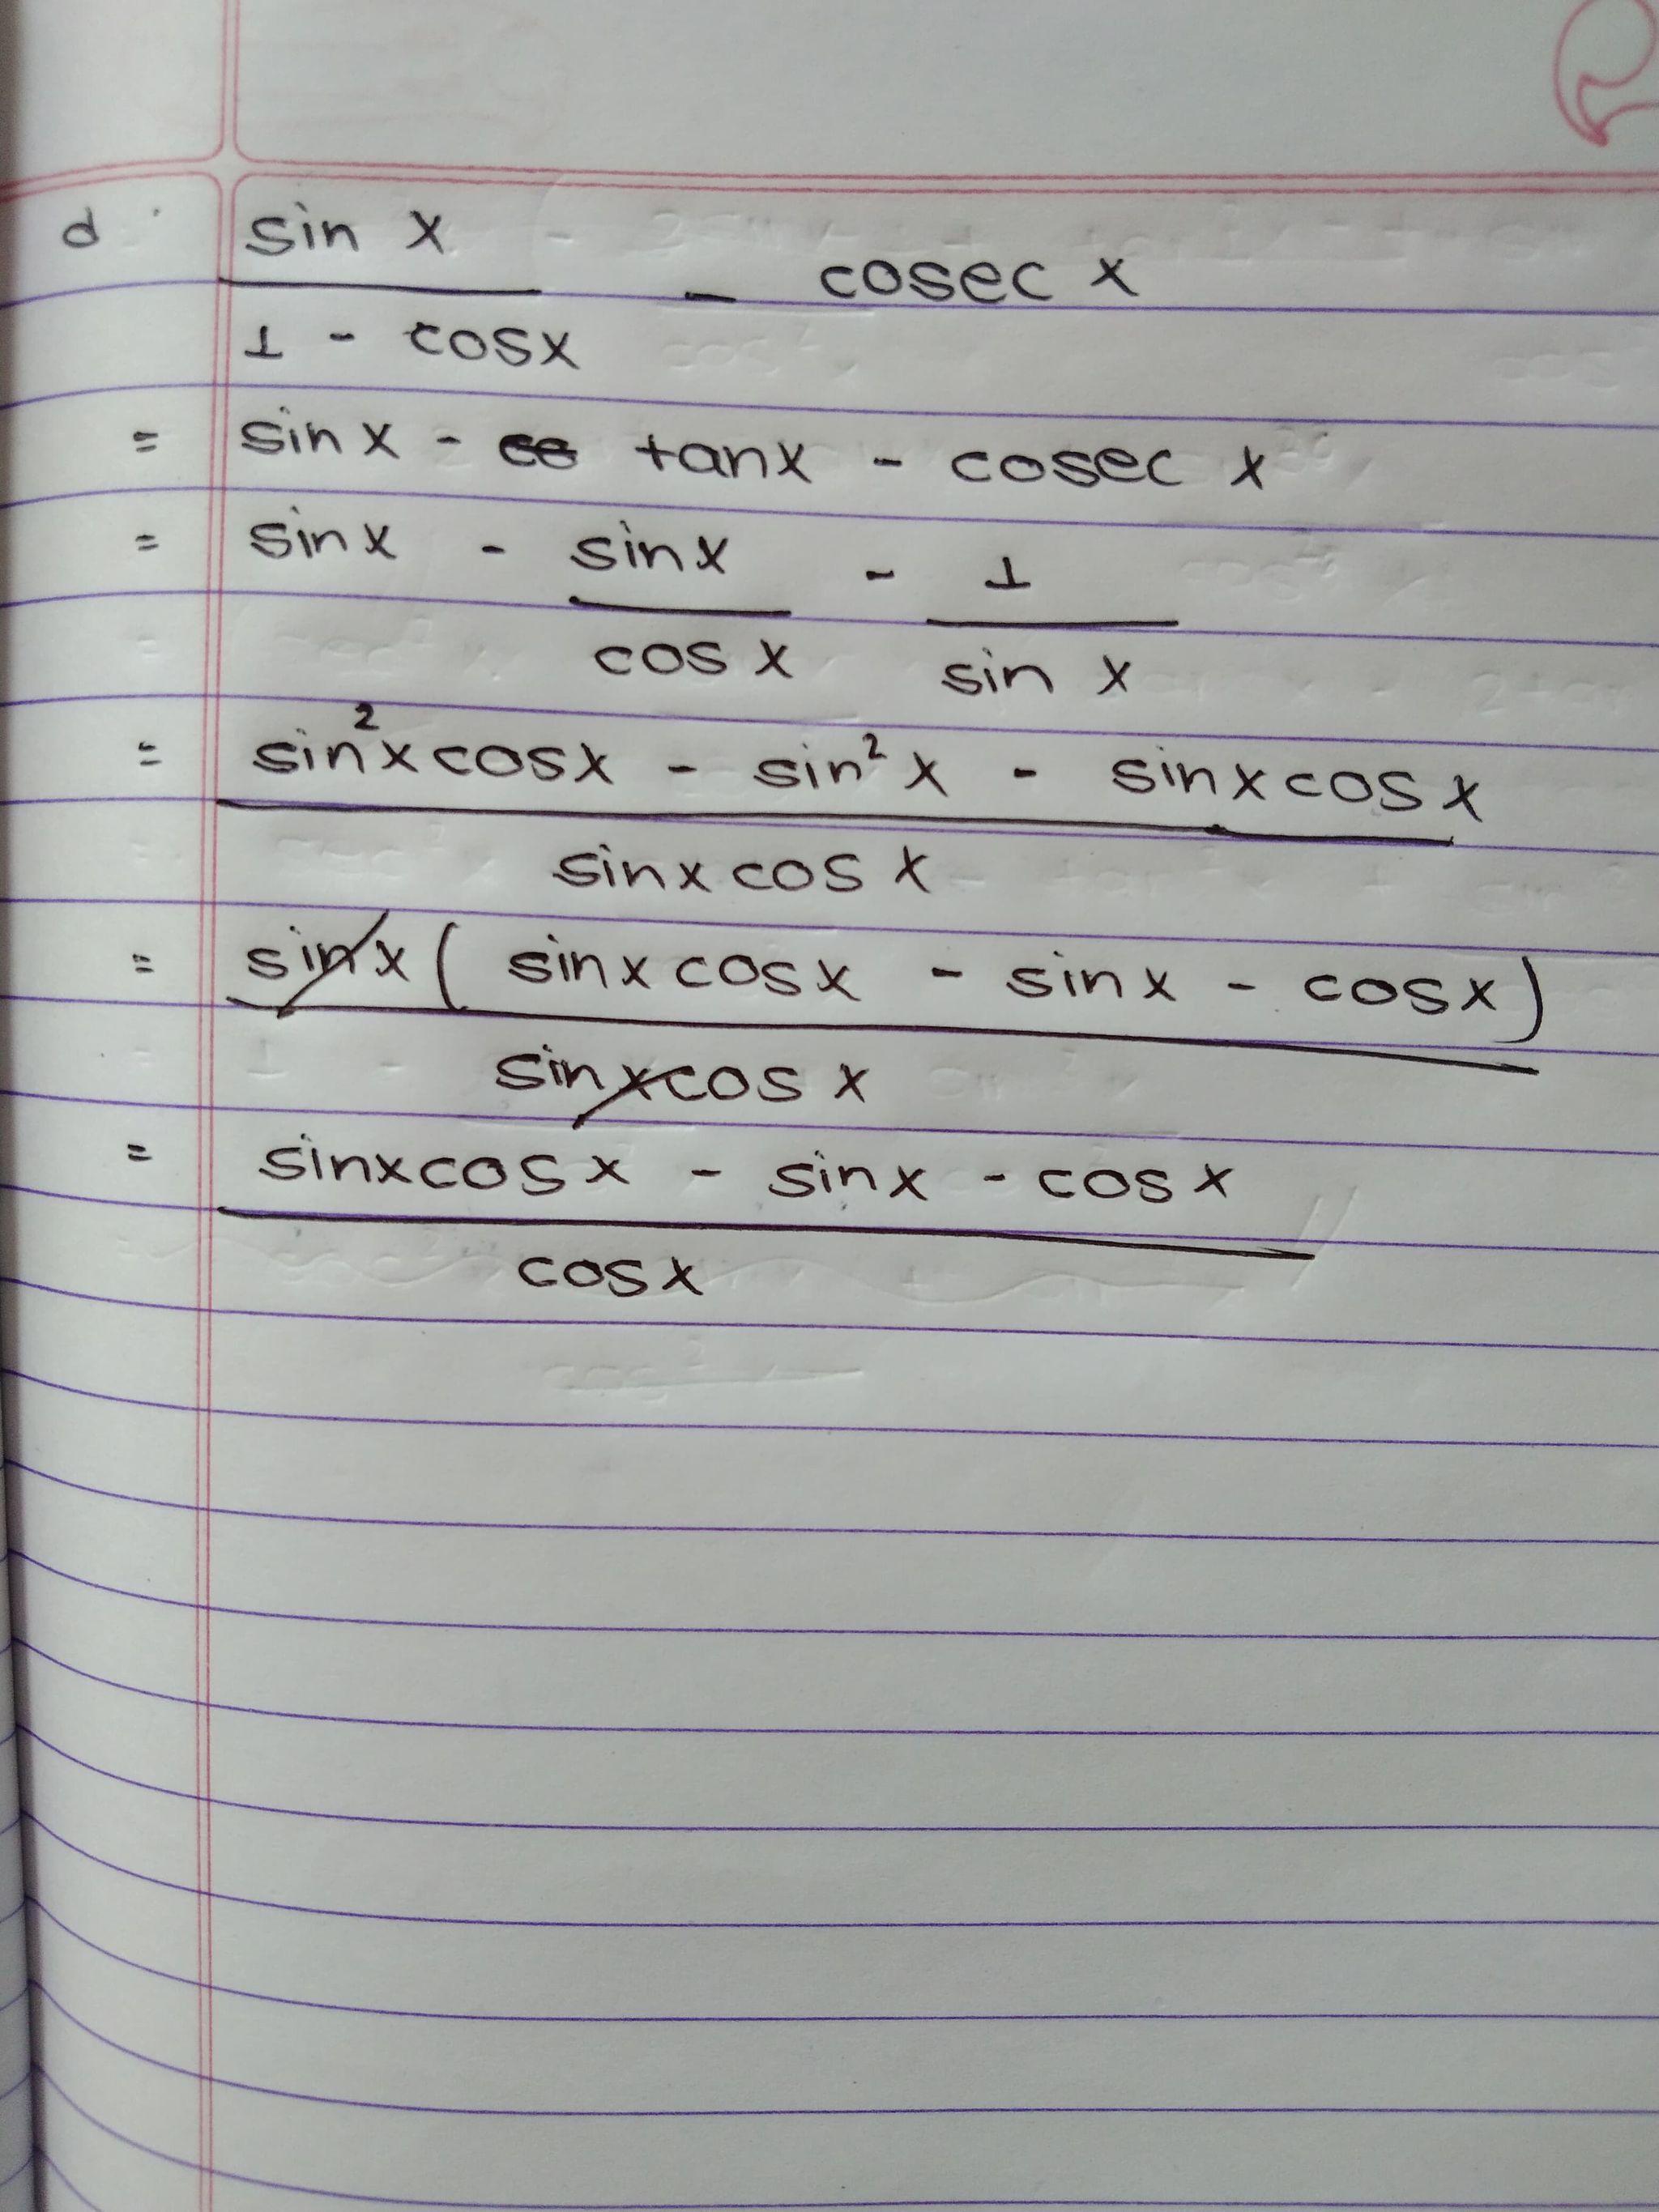 d sin x / 1 - cosx - cosec x
= sin x - tanx - cosec x
= sinx - sinx / cos x - 1 / sin x
= sin²x cosx - sin²x - sinx cosx / sinx cos x
= sinx ( sinx cosx - sinx - cosx) / sinxcos x
= sinxcosx - sinx - cosx / cosx